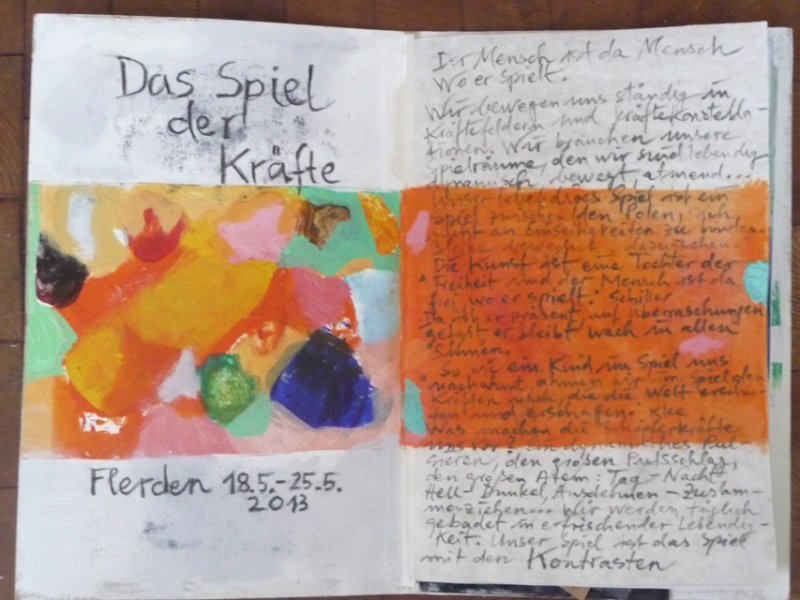 Das Spiel
der
Kräfte
Flerden 18.5.-25.5.
2013
Der Mensch ist da Mensch
Wo er spielt.
Wir bewegen uns ständig in
Kräftefeldern und Kräftekonstella-
tionen. Wir brauchen unsere
Spielräume, den wir sind lebendig
dynamisch bewegt atmend...
Unser lebendiges Spiel ist ein
Spiel zwischen den Polen, sich
nicht an einseitigkeiten zu binden.
dazwischen.
Die Kunst ist eine Tochter der
"Freiheit und der Mensch ist da
frei, wo er spielt." Schiller
Da ist er präsent auf Überraschungen
gefasst er bleibt wach in allen
Sinnen.
So wie ein Kind im Spiel uns
"nachahmt ahmen wir im Spiel den
Kräften nach, die die Welt erschu-
fen und erschaffen. Klee
Was machen die Schöpferkräfte
uns vor? ein dynamisches Pul-
sieren, den großen Pulsschlag,
den großen Atem: Tag - Nacht
Hell - Dunkel, Ausdehnen - Zusam-
menziehen... Wir werden täglich
gebadet in erfrischender Lebendig-
Keit. Unser Spiel ist das Spiel
mit den Kontrasten